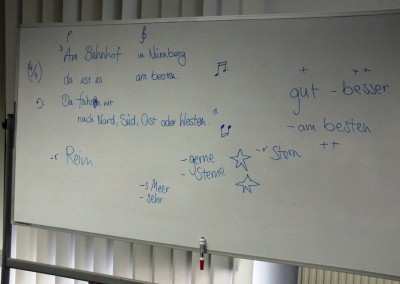 „Am Bahnhof in Nürnberg
(4/4)
da ist es am besten.
Da fahren wir
nach Nord, Süd, Ost oder Westen.“
+ ++
gut - besser
- am besten
++
-r Reim
- gerne
- Sterne
-r Stern
-s Meer
- sehr